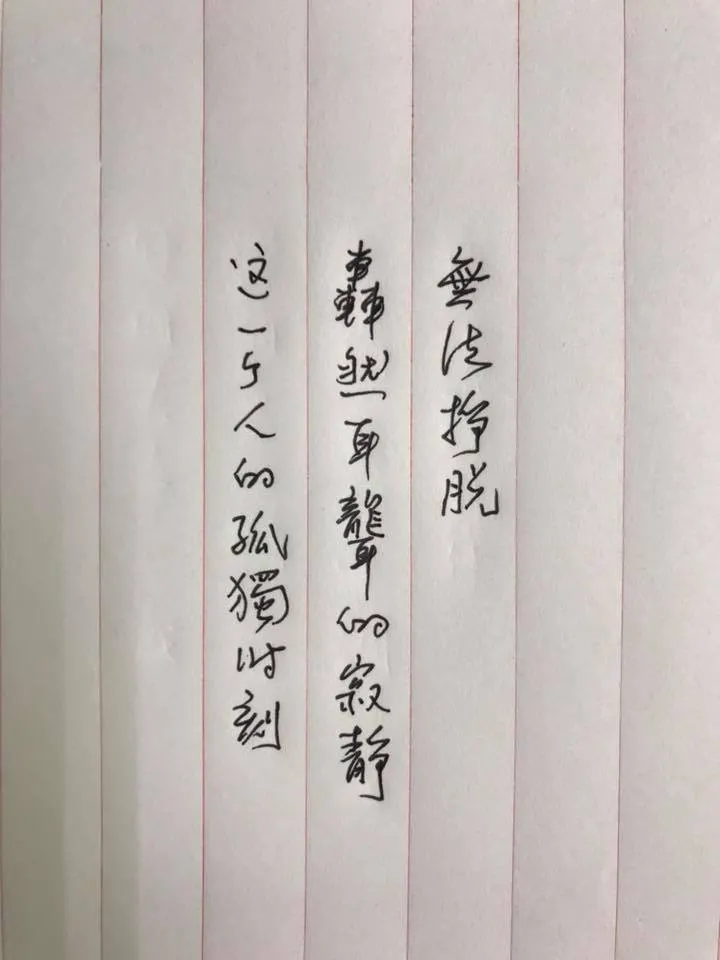 無法掙脱
轟然耳聾的寂靜
这一个人的孤獨时刻